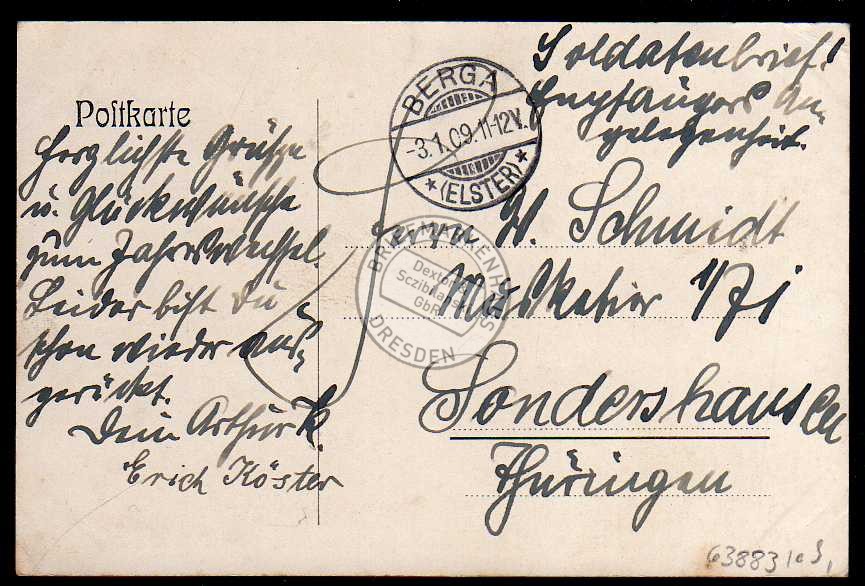 Postkarte
Herzlichste Grüße
u. Glückwünsche
zum Jahreswechsel.
Leider bist Du
schon wieder aus=
gerückt.
Dein Arthur K.
Erich Köster
BERGA
-3.1.09.11-12V.
* (ELSTER) *
Soldatenbrief!
Empfängers An=
gelegenheit.
Herrn W. Schmidt
Musketier 1/71
Sondershausen
Thüringen
BRIEFMARKENHAUS
GbR
DRESDEN
63883